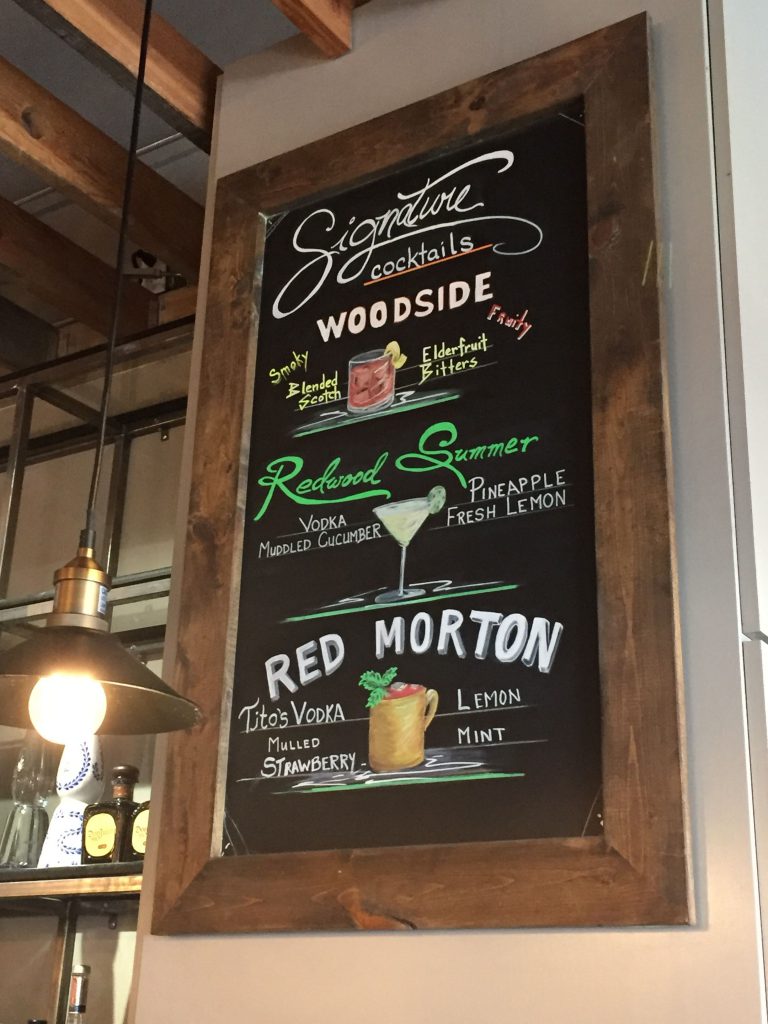 Signature
cocktails
WOODSIDE
Smoky
Fruity
Blended
Scotch
Elderfruit
Bitters
Redwood Summer
VODKA
MUDDLED CUCUMBER
PINEAPPLE
FRESH LEMON
RED MORTON
TITO'S VODKA
MULLED
STRAWBERRY
LEMON
MINT